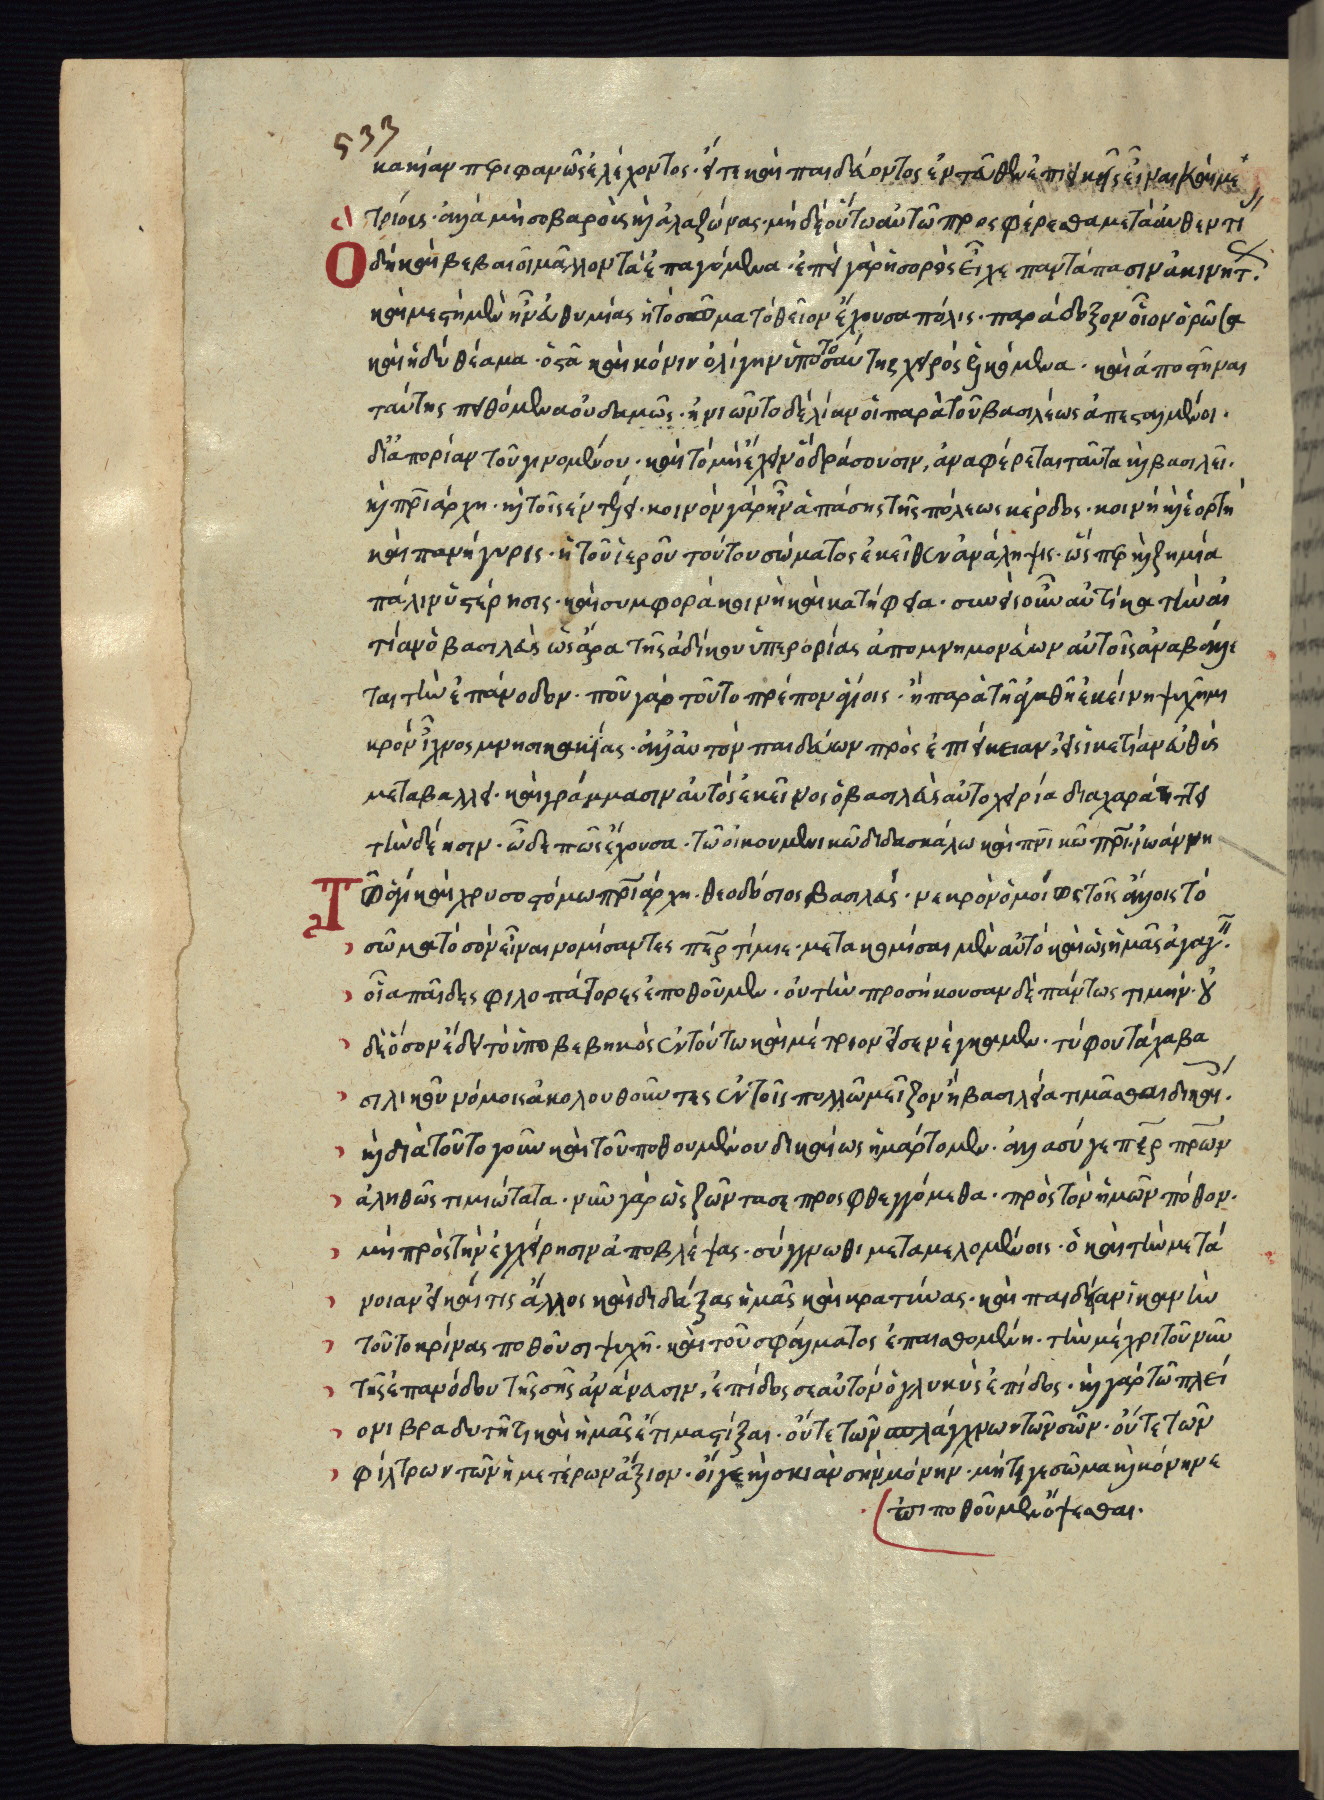 533
κακίαν περιφανῶς ἐλέγχοντος· εἴτε καὶ παιδεύοντος ἐντεῦθεν ἐπιεικεῖς εἶναι καὶ με
τρίοις· ἀλλὰ μὴ σοβαροῖς καὶ ἀλαζόνας· μηδὲ οὕτω αὐτῶ προσφέρεσθαι μετὰ αὐθεντι
Ὃ δὴ καὶ βεβαιοῖ μᾶλλον τὰ ἐπαγόμενα· ἐπεὶ γὰρ ἡ σορὸς εἶχε παντάπασιν ἀκινητ.
καὶ μεστὴ μὲν ἦν εὐθυμίας ἡ τὸ σῶμα τὸ θεῖον ἔχουσα πόλις· παράδοξον οἷον ὁρῶσα
καὶ ἡδὺ θέαμα· ὀστᾶ καὶ κόνιν ὀλίγην ὑπὸ τοσαύτης χειρὸς ἑλκόμενα· καὶ ἀποστῆναι
ταύτης πειθόμενα οὐδαμῶς· ἠνιῶντο δὲ λίαν οἱ παρὰ τοῦ βασιλέως ἀπεσταλμένοι·
δι' ἀπορίαν τοῦ γινομένου· καὶ τὸ μὴ ἔχειν ὃ δράσουσιν, ἀναφέρεται ταῦτα καὶ βασιλεῖ·
καὶ πριάρχη· καὶ τοῖς ἐν τέλει· κοινὸν γὰρ ἦν ἁπάσης τῆς πόλεως κέρδος· κοινὴ καὶ ἑορτὴ
καὶ πανήγυρις· ἡ τοῦ ἱεροῦ τούτου σώματος ἐκεῖθεν ἀνάληψις· ὥσπερ καὶ ζημία
πάλιν ἡ στέρησις· καὶ συμφορὰ κοινὴ καὶ κατήφεια· συνεὶς οὖν αὐτίκα τὴν αἰ
τίαν ὁ βασιλεὺς ὡς ἄρα τῆς ἀδίκου ὑπερορίας ἀπομνημονεύων αὐτοῖς ἀναβάλλε
ται τὴν ἐπάνοδον· ποῦ γὰρ τοῦτο πρέπον ἁγίοις· ἢ παρὰ τῇ ἀγαθῇ ἐκείνη ψυχῇ μι
κρὸν ἴχνος μνησικακίας· ἀλλ' αὐτὸν παιδεύων πρὸς ἐπιείκειαν, εἰς ἱκετίαν εὐθὺς
μεταβάλλει· καὶ γράμμασιν αὐτὸς ἐκεῖνος ὁ βασιλεὺς αὐτοχειρία διαχαράττει
τὴν δέησιν· ὧδέ πως ἔχουσα· τῶ οἰκουμενικῶ διδασκάλω καὶ πνικῶ πρι ἰωάννη
Τῶ ἁγίω καὶ χρυσοστόμω πριάρχη· θεοδόσιος βασιλεύς· νεκρὸν ὁμοίως τοῖς ἄλλοις τὸ
σῶμα τὸ σὸν εἶναι νομίσαντες περ τίμιε· μετακομίσαι μὲν αὐτὸ καὶ ὡς ἡμᾶς ἀγαγ.
οἷα παῖδες φιλοπάτορες ἐποθοῦμεν· οὐ τὴν προσήκουσαν δὲ πάντως τιμήν· οὐ
δὲ ὅσον ἔδει τὸ ὑποβεβηκὸς ἐν τούτω καὶ μέτριον εἰσενέγκαμεν· τύφου τάχα βα
σιλικοῦ νόμοις ἀκολουθοῦντες ἐν τοῖς πολλῶ μεῖζον ἢ βασιλέα τιμᾶσθαι δικαί.
καὶ διὰ τοῦτο γοῦν καὶ τοῦ ποθουμένου δικαίως ἡμάρτομεν· ἀλλὰ σύ γε περ πρων
ἀληθῶς τιμιώτατα· νῦν γὰρ ὡς ζῶντα σε προσφθεγγόμεθα· πρὸς τὸν ἡμῶν πόθον·
μὴ πρὸς τὴν ἐγχείρησιν ἀποβλέψας· σύγγνωθι μεταμελομένοις· ὁ καὶ τὴν μετά
νοιαν εἰ καί τις ἄλλος καὶ διδάξας ἡμᾶς καὶ κρατύνας· καὶ παιδείαν ἱκανὴν
τοῦτο κρίνας ποθοῦσι ψυχῇ· καὶ τοῦ σφάλματος ἐπαισθομένη· τὴν μέχρι τοῦ νῦν
τῆς ἐπανόδου τῆς σῆς ἀνάνευσιν, ἐπίδος σεαυτὸν ὁ γλυκὺς ἐπίδος· καὶ γὰρ τῶ πλεί
ονι βραδυτῆτι καὶ ἡμᾶς ἔτι μαστίξαι· οὔτε τῶν σπλάγχνων τῶν σῶν· οὔτε τῶν
φίλτρων τῶν ἡμετέρων ἄξιον· οἵ γε καὶ σκιὰν σὴν μόνην· μήτι γε σῶμα καὶ κόνιν ἐ
πιποθοῦμεν ὄψεσθαι·